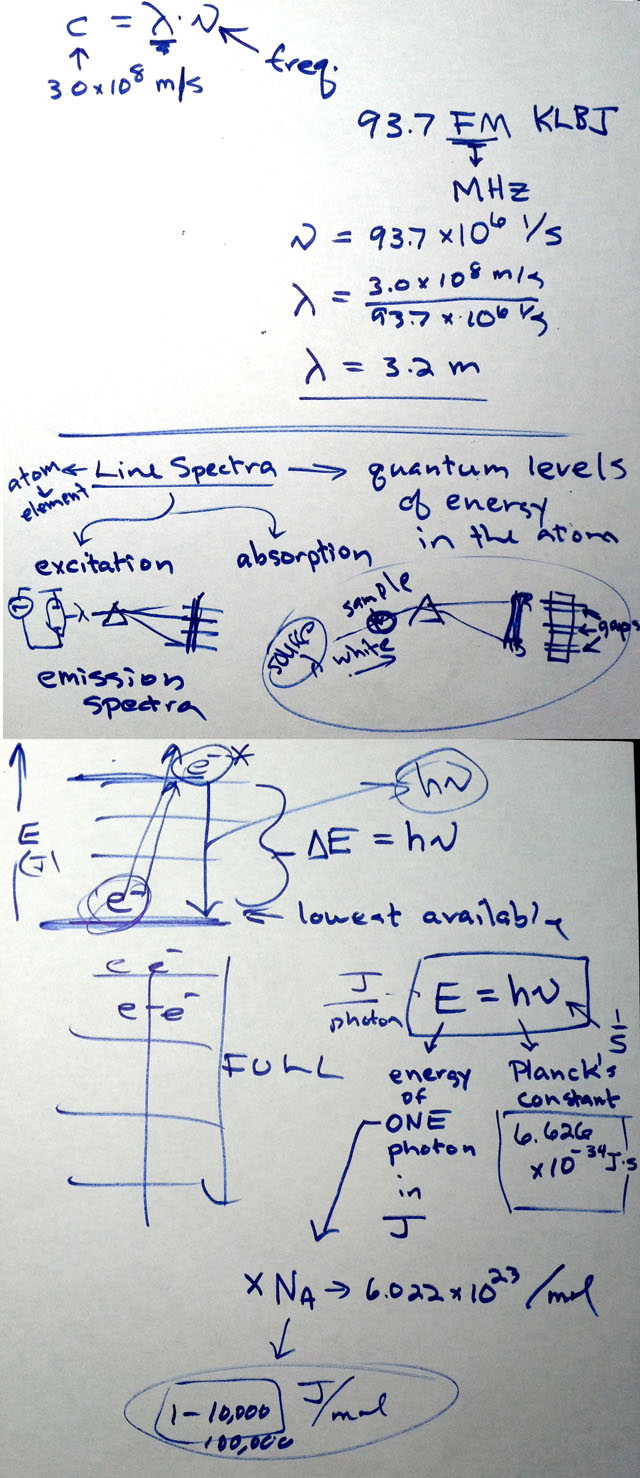 c = λ·ν
freq.
3.0×10⁸ m/s
93.7 FM KLBJ
MHz
ν = 93.7 × 10⁶ 1/s
λ = 3.0 × 10⁸ m/s
93.7 × 10⁶ 1/s
λ = 3.2 m
atom ← Line Spectra → quantum levels
element
of energy
in the atom
excitation
absorption
λ
emission
spectra
source
λ
sample
white
gaps
E
(J)
e⁻*
e⁻
hν
ΔE = hν
lowest available
e e⁻
e⁻ e⁻
FULL
J
photon
E = hν
1
S
energy
of
ONE
photon
in
J
Planck's
constant
6.626
×10⁻³⁴ J·s
× N_A → 6.022 × 10²³ /mol
1 – 10,000 J/mol
100,000